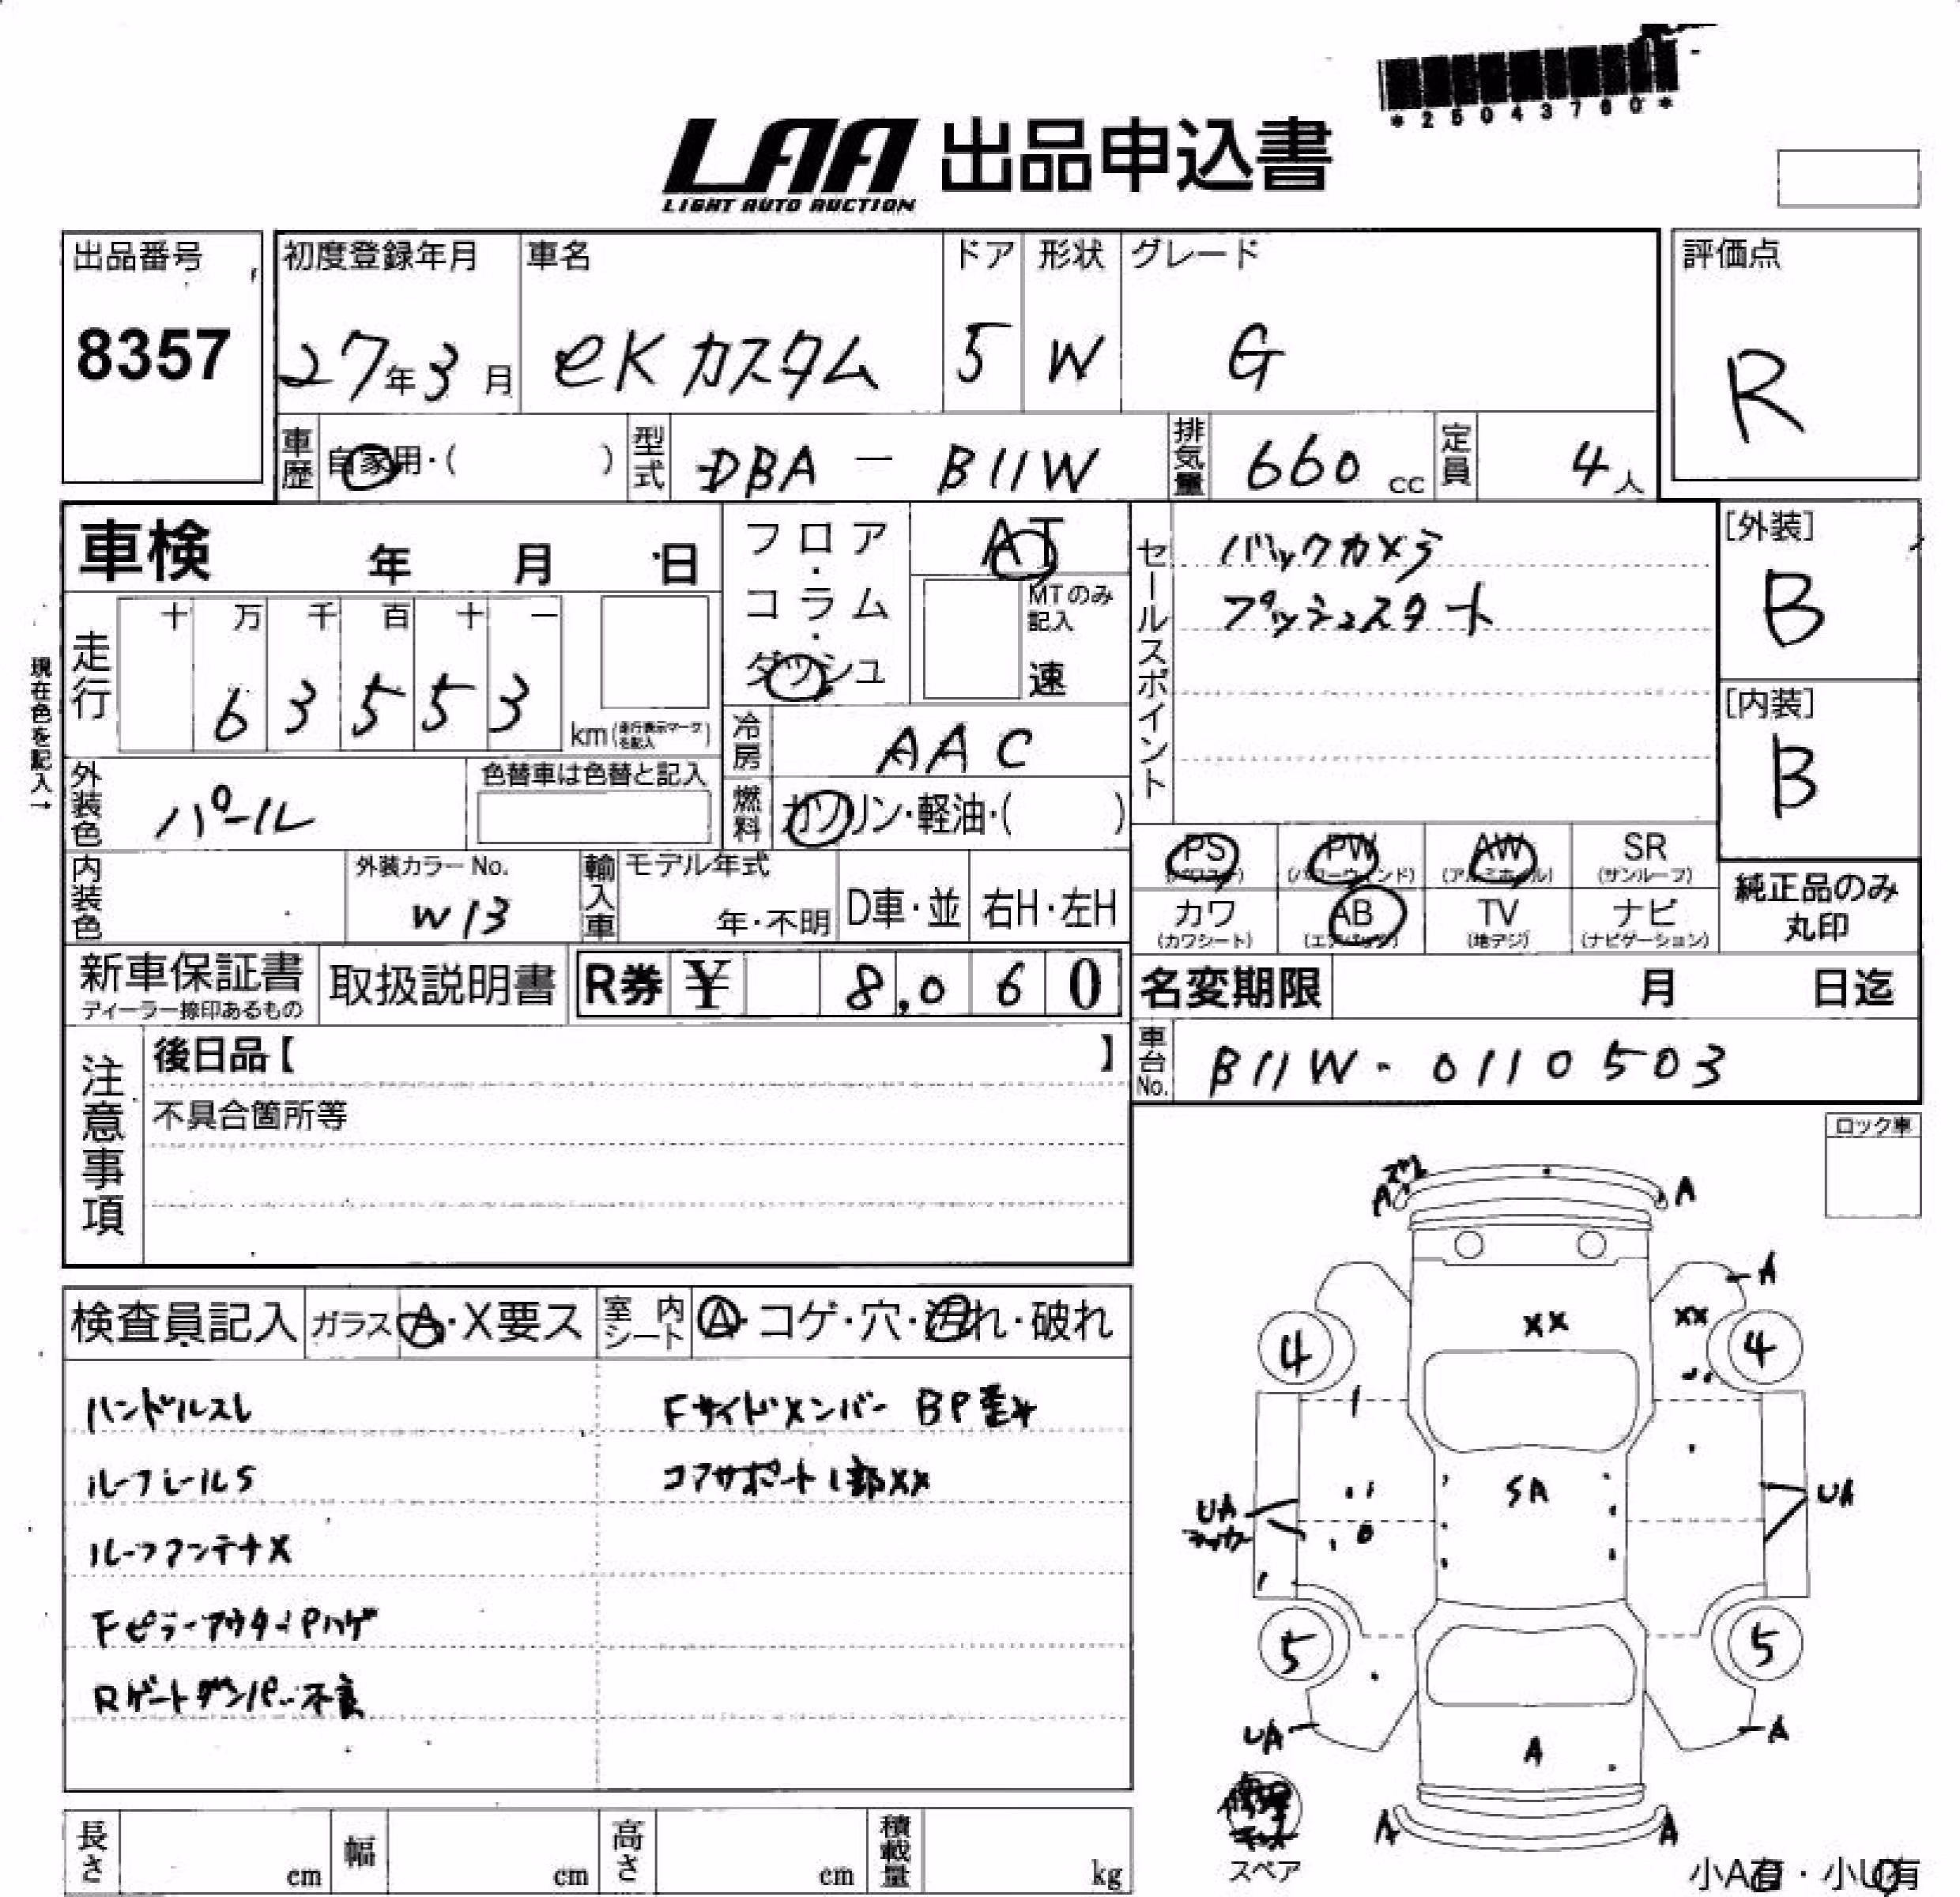 *25043760*
LAA 出品申込書
LIGHT AUTO AUCTION
出品番号
8357
初度登録年月
27年3月
車名
eKカスタム
ドア
5
形状
W
グレード
G
評価点
R
車歴 自家用・( )
型式 DBA - B11W
排気量 660 cc
定員 4人
車検 年 月 日
フロア・コラム・ダッシュ
AT
MTのみ記入
速
セールスポイント
バックカメラ
プッシュスタート
[外装]
B
[内装]
B
現在色を記入→
走行
十 万 千 百 十 一
6 3 5 5 3
km(走行表示マークを記入)
冷房 AAC
外装色 パール
色替車は色替と記入
燃料 ガソリン・軽油・( )
PS AW SR
(パワステ) (アルミホイル) (サンルーフ)
PW
(パワーウィンド)
内装色
外装カラーNo.
W13
輸入車
モデル年式
年・不明
D車・並
右H・左H
カワ AB TV ナビ
(カワシート) (エアバッグ) (地デジ) (ナビゲーション)
純正品のみ
丸印
新車保証書
ディーラー捺印あるもの
取扱説明書
R券 ¥ 8,060
名変期限 月 日迄
車台No. B11W-0110503
注意事項
後日品【 】
不具合箇所等
ロック車
検査員記入
ガラス A・X要ス
室内シート A・コゲ・穴・汚れ・破れ
ハンドルスレ
ルーフレールS
ルーフアンテナX
FピラーアウターPハゲ
Rゲートダンパー不良
Fサイドメンバー BP歪み
コアサポート L部XX
A
A
A
XX
XX
4
4
SA
UA
UA
5
5
UA
A
A
A
A
修理キット
スペア
長さ cm
幅 cm
高さ cm
積載量 kg
小A有・小U有